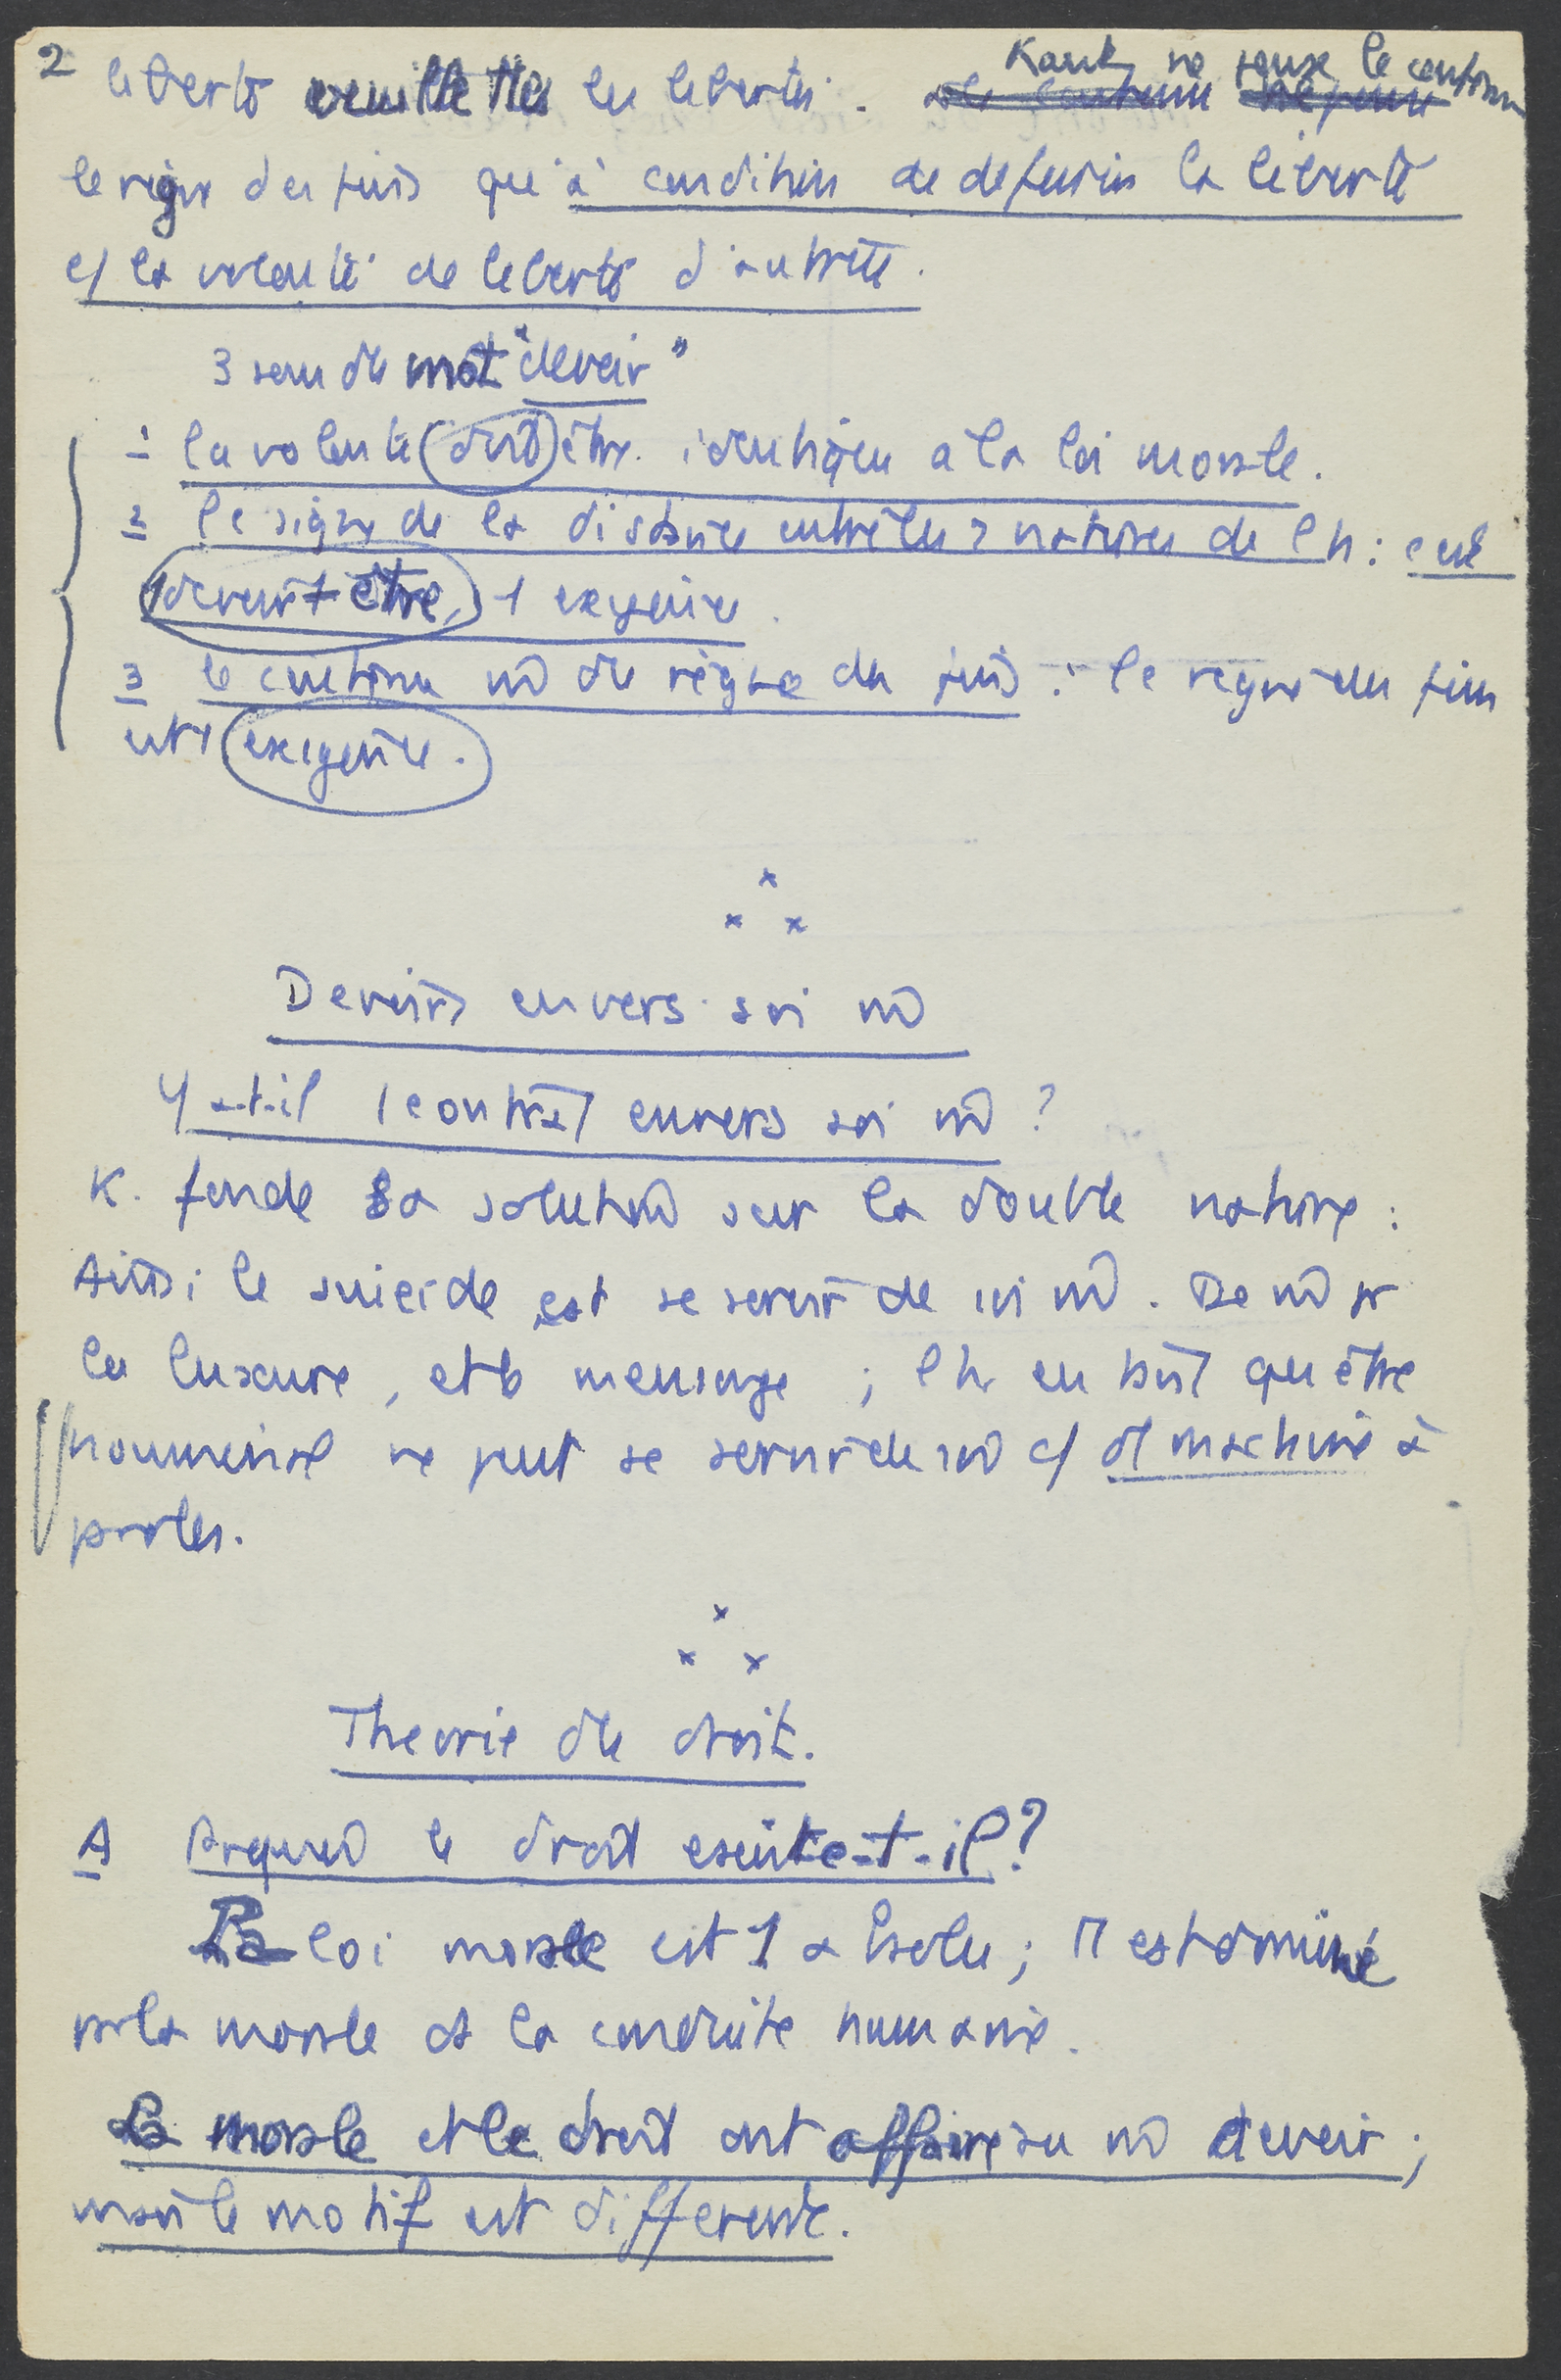 2
liberté veuille les libertés. Kant ne pense le contenu
le règne des fins qu'à condition de définir la liberté
c/ la volonté de liberté d'autrui.
3 sens du mot "devoir"
1 la volonté doit être identique à la loi morale.
2 le signe de la distance entre les 2 natures de l'h : c'est
1 devoir être, 1 exigence.
3 le contenu m̂ du règne des fins : le règne des fins
est 1 exigence.
x
x x
Devoirs envers soi m̂
Y a-t-il 1 contrat envers soi m̂ ?
K. fonde sa solution sur la double nature :
Ainsi le suicide est se servir de soi m̂. De m̂ pr
la luxure, et le mensonge ; l'h en tant qu'être
nouménal ne peut se servir de soi m̂ c/ d'1 machine à
parler.
x
x x
Théorie du droit.
A Pourquoi le droit existe-t-il ?
La loi morale est 1 absolu ; il est dominé
par la morale et la conduite humaine.
La morale et le droit ont affaire au m̂ devoir ;
mais le motif est différent.